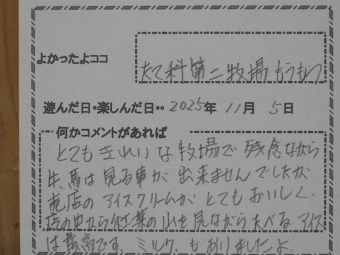 よかったよココ
たて科第二牧場もうもう
遊んだ日・楽しんだ日・・ 2025年 11月 5日
何かコメントがあれば
とてもきれいな牧場で残念ながら
牛、馬は見る事が出来ませんでしたが
売店のアイスクリームがとてもおいしく、
店の中から紅葉の山を見ながらたべるアイス
は最高です。ミルクもありましたよ